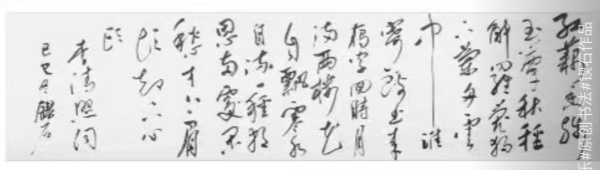 红藕香残
玉簟秋轻
解罗裳独
上兰舟云
中谁
寄锦书来
雁字回时月
满西楼花
自飘零水
自流一种相
思两处闲
愁才下眉
头却上心
头
李清照词
锲石
乐#原创书法#锲石作品